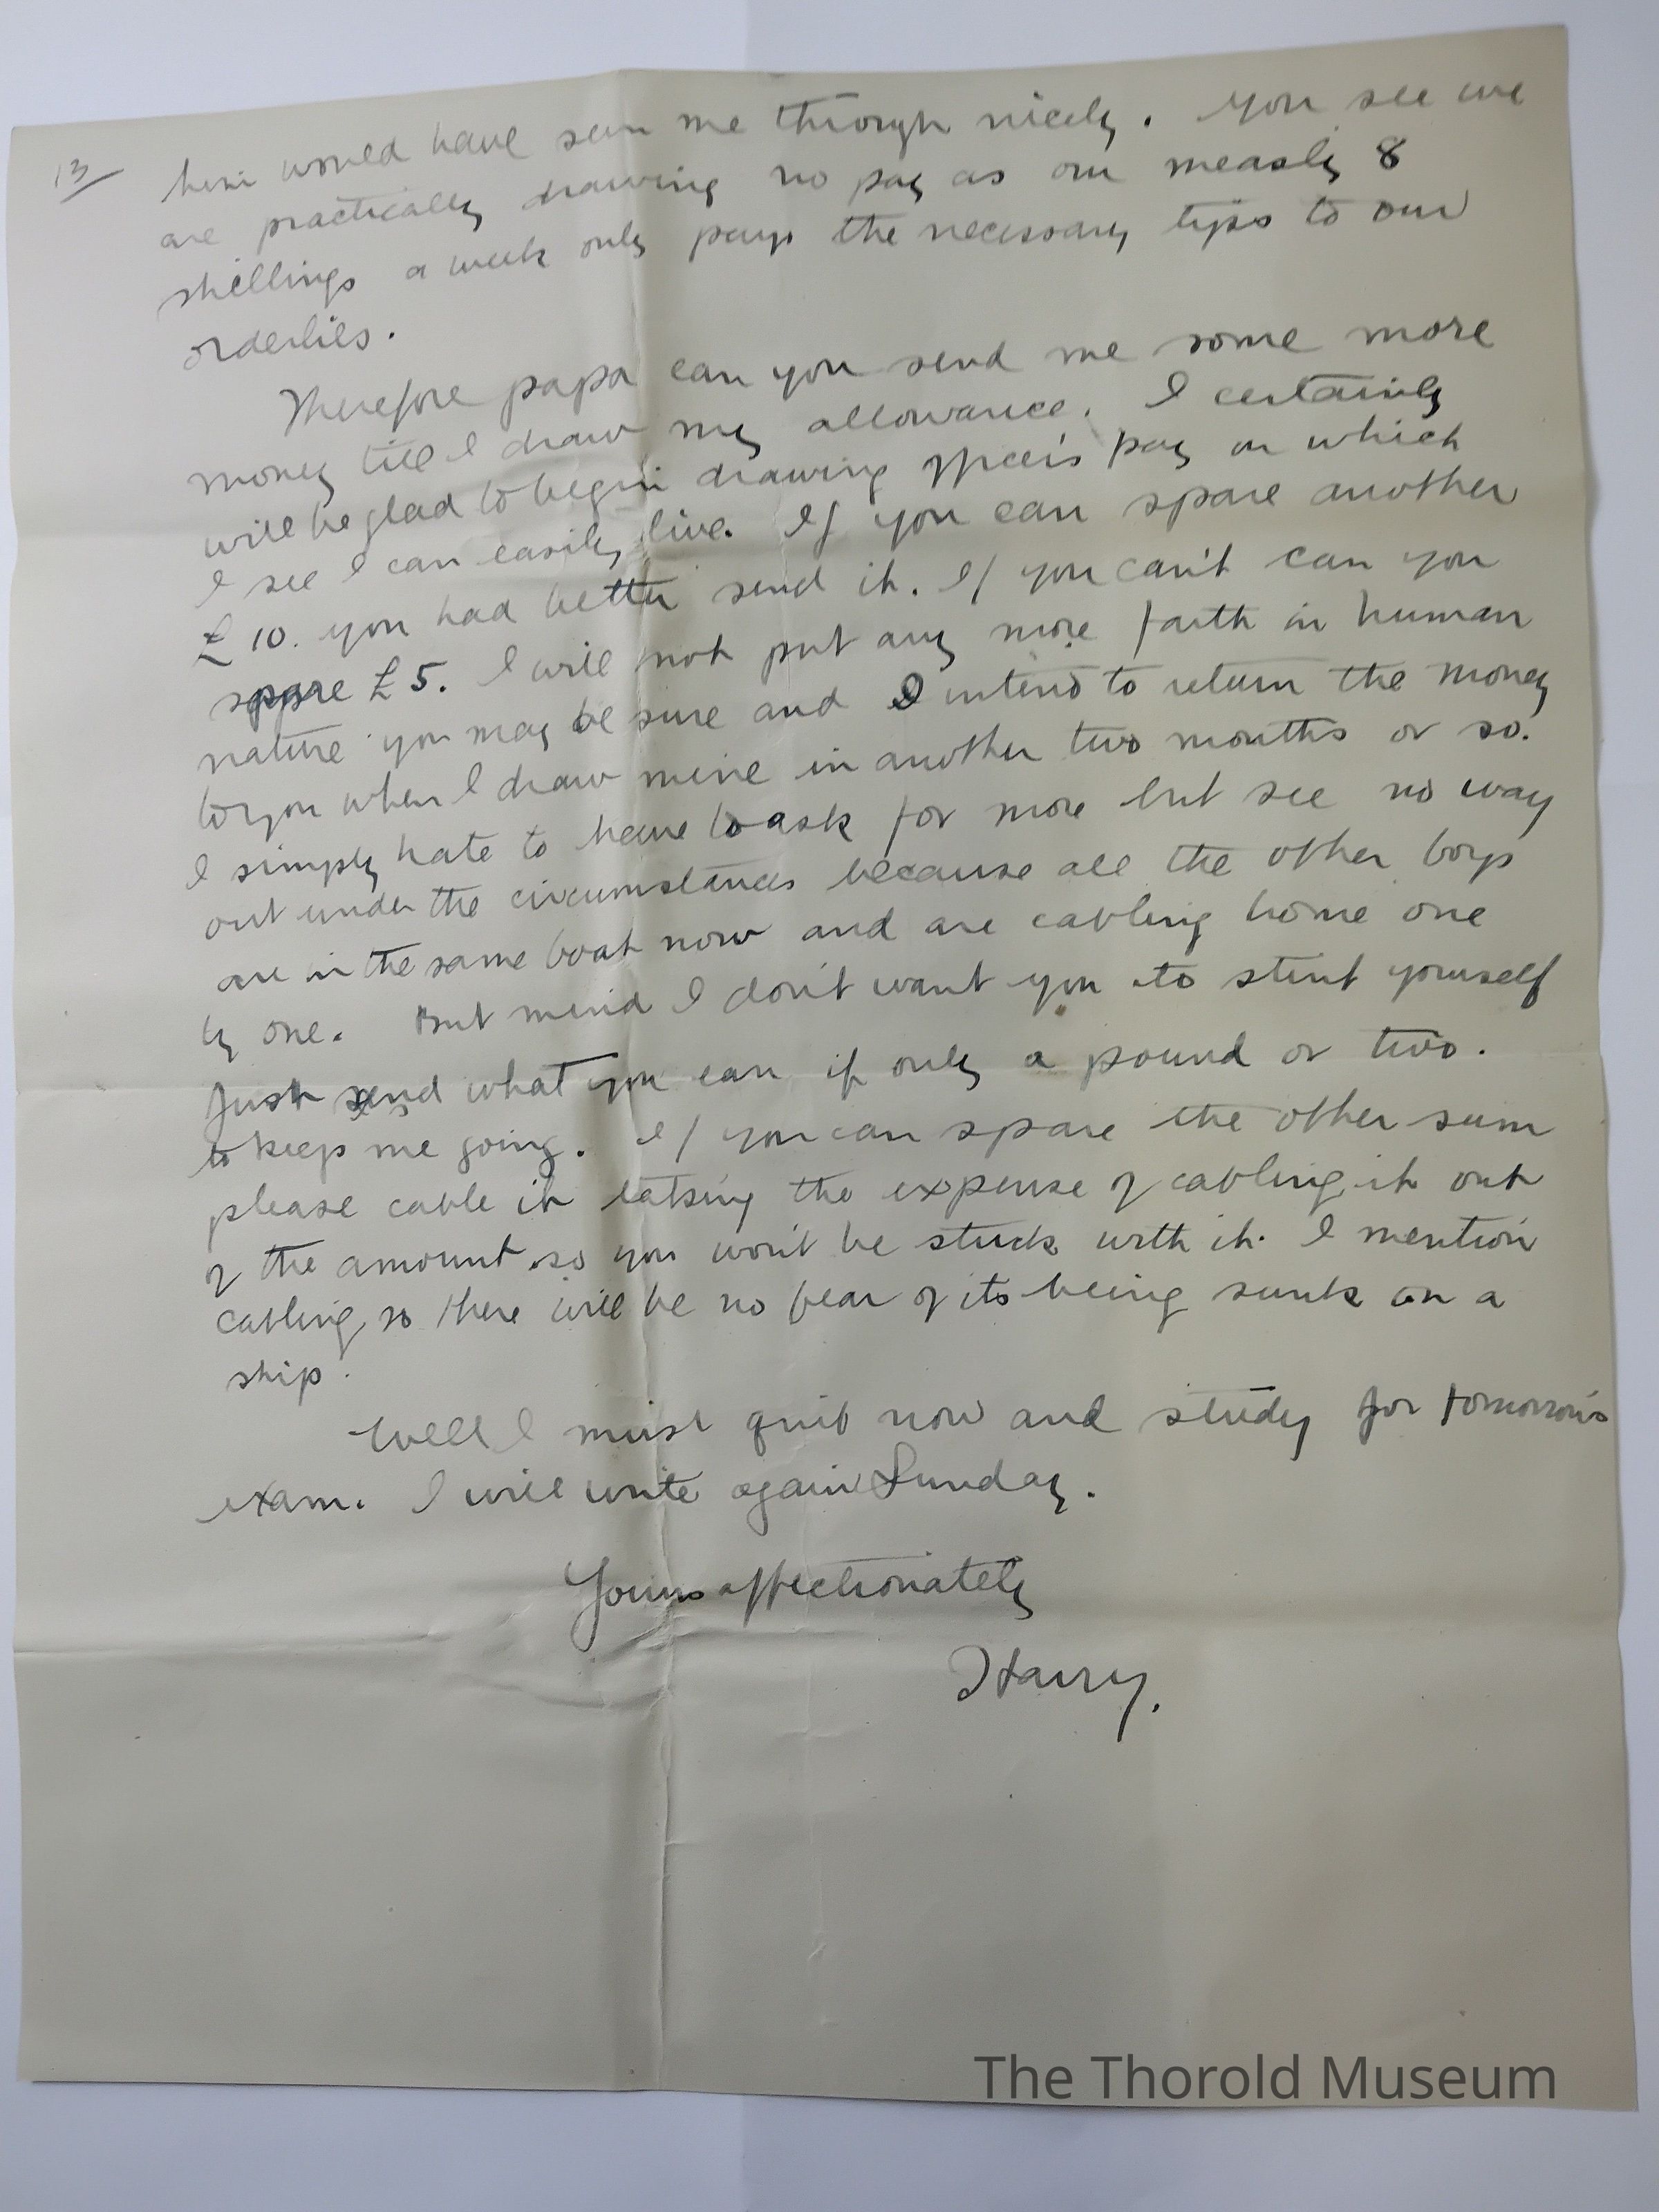 13/
him would have seen me through nicely. You see we
are practically drawing no pay as our measly 8
shillings a week only pays the necessary tips to our
orderlies.
Therefore papa can you send me some more
money till I draw my allowance. I certainly
will be glad to begin drawing officer's pay on which
I see I can easily live. If you can spare another
£10. you had better send it. If you can't can you
spare £5. I will not put any more faith in human
nature you may be sure and I intend to return the money
to you when I draw mine in another two months or so.
I simply hate to have to ask for more but see no way
out under the circumstances because all the other boys
are in the same boat now and are cabling home one
by one. But mind I don't want you to stint yourself
Just send what you can if only a pound or two.
to keep me going. If you can spare the other sum
please cable it taking the expense of cabling it out
of the amount so you won't be stuck with it. I mention
cabling so there will be no fear of its being sunk on a
ship.
Well I must quit now and study for tomorrow's
exam. I will write again Sunday.
Yours affectionately
Harry.
The Thorold Museum